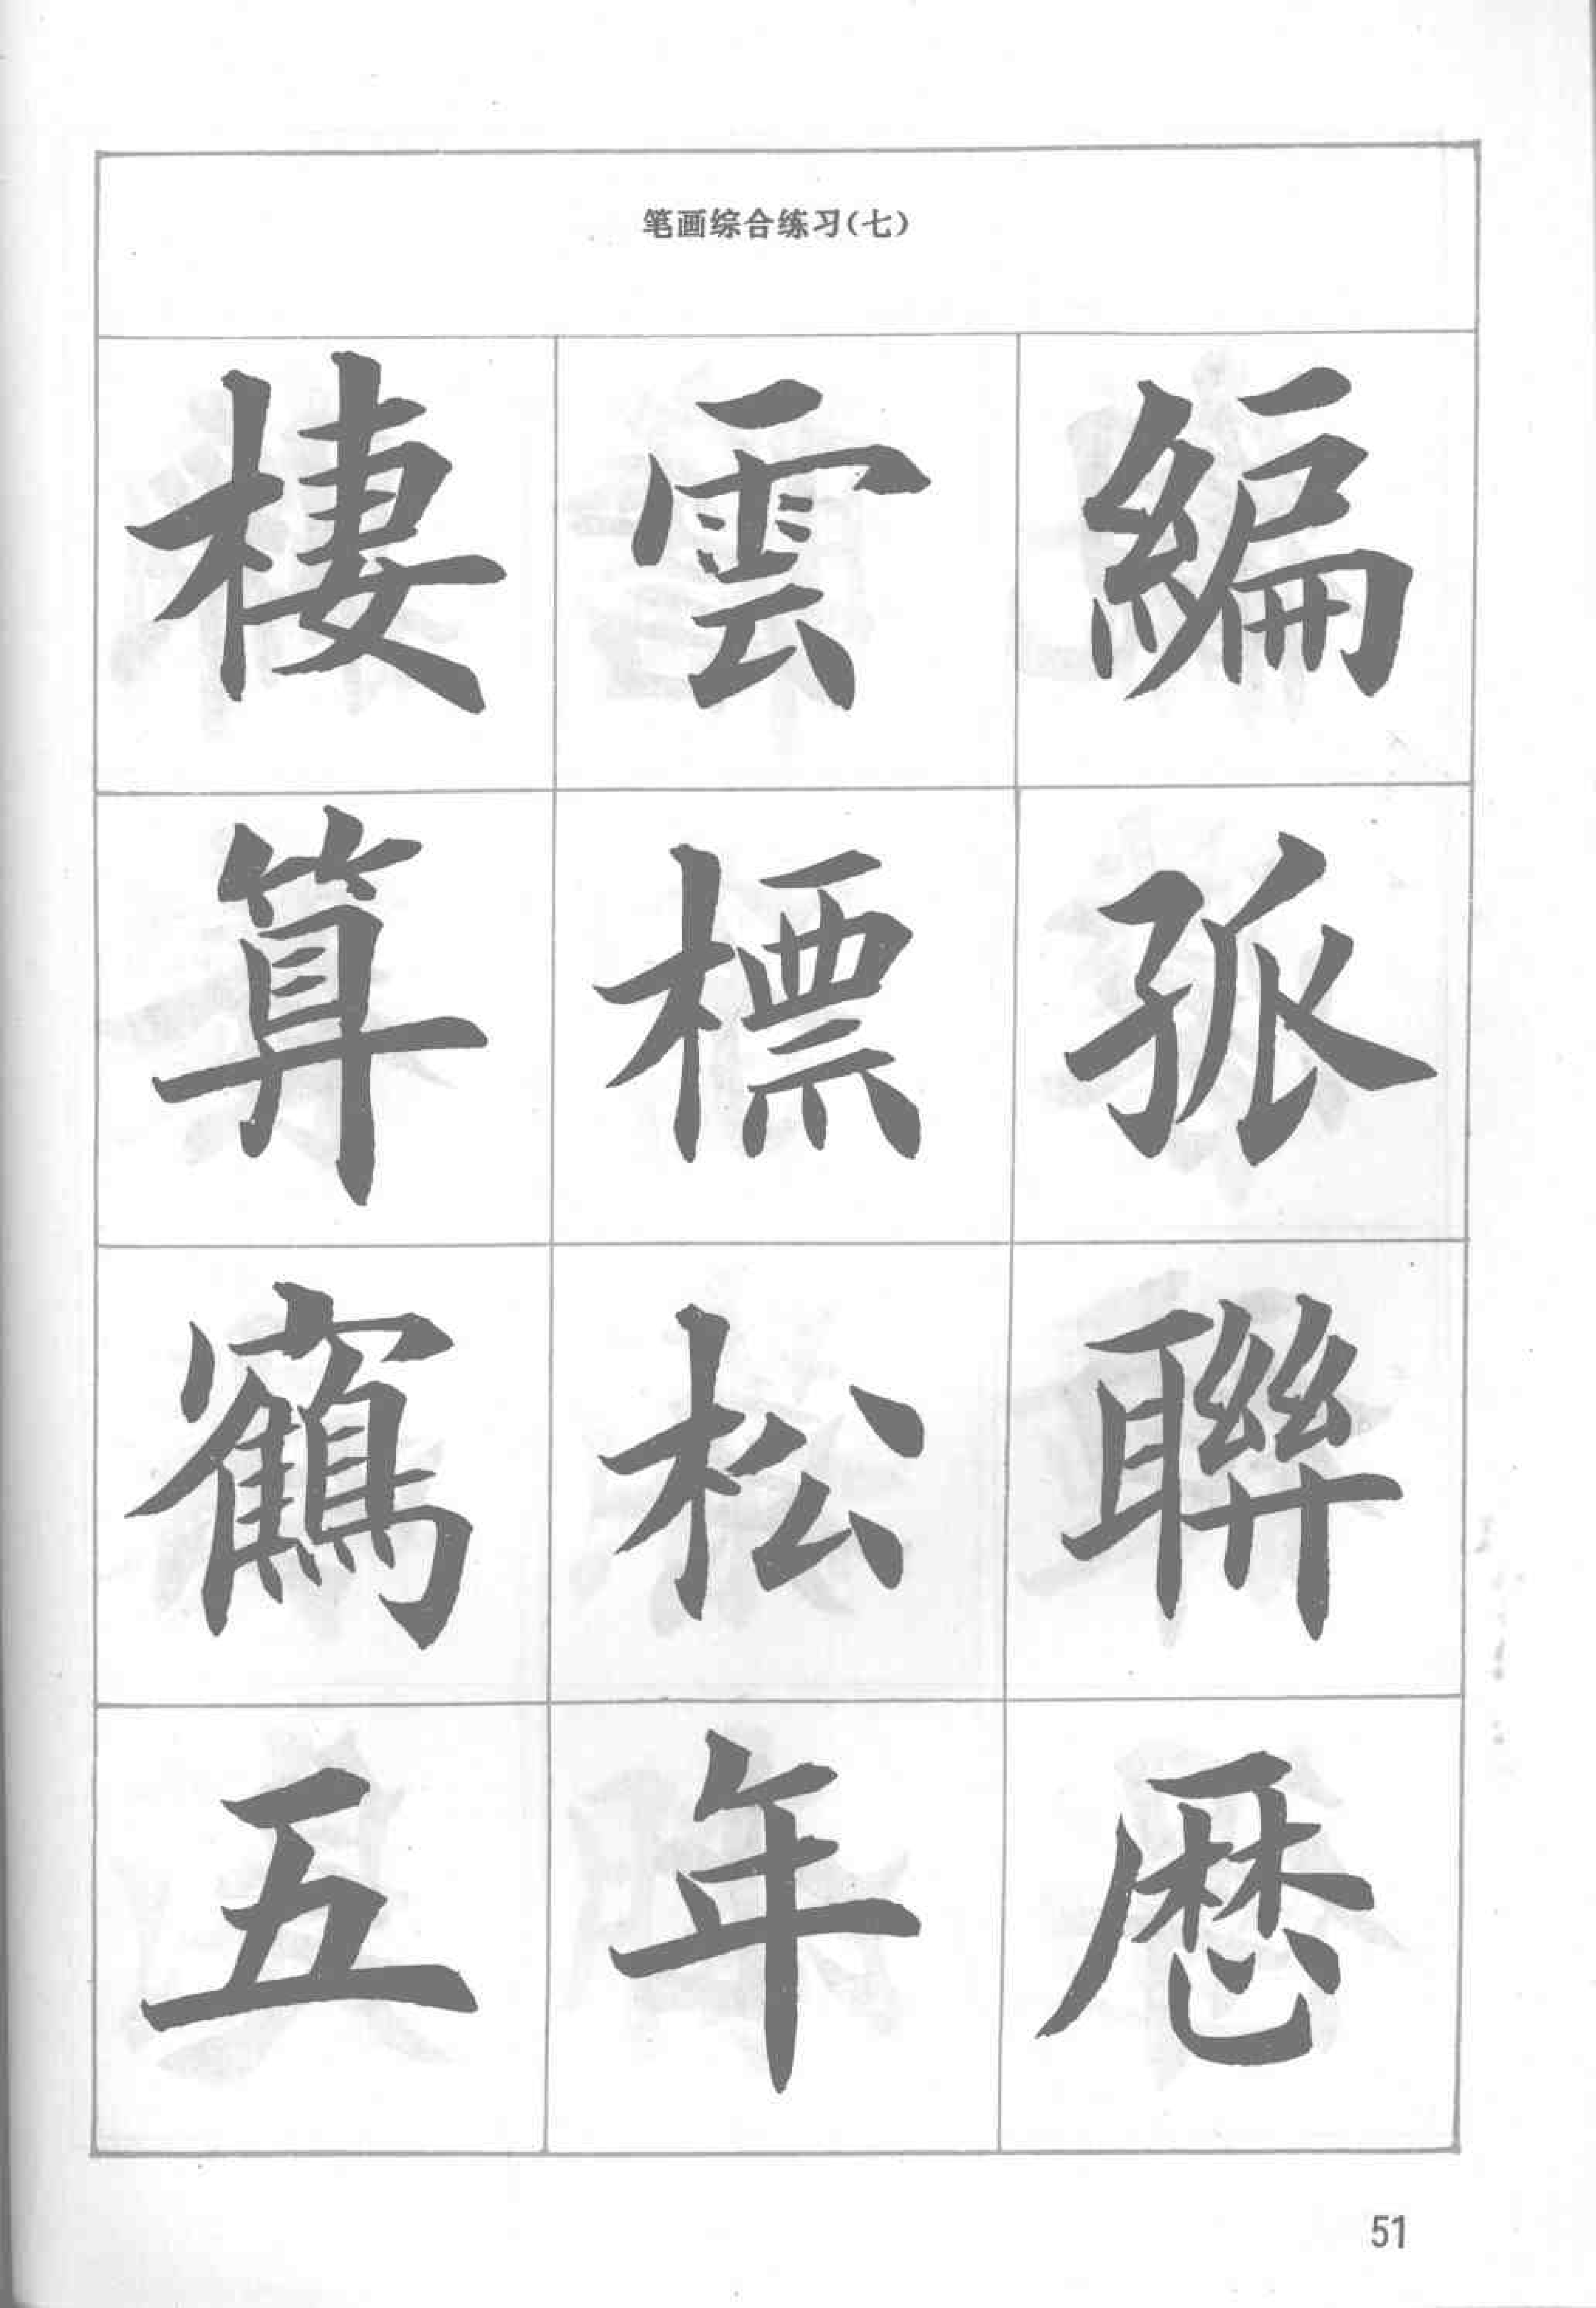 笔画综合练习(七)
棲雲編
算標孤
鶴松聯
五年歷
51